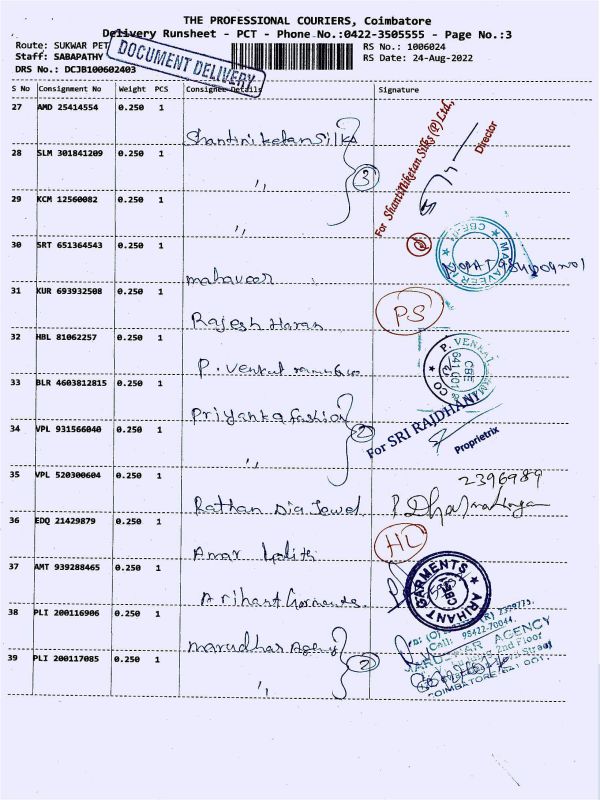 THE PROFESSIONAL COURIERS, Coimbatore
Delivery Runsheet - PCT - Phone No.:0422-3505555 - Page No.:3
Route: SUKWAR PET
RS No.: 1006024
Staff: SABAPATHY
RS Date: 24-Aug-2022
DRS No.: DCJB100602403
DOCUMENT DELIVERY
S No Consignment No Weight PCS Consignee Details Signature
27 AMD 25414554 0.250 1 Shantiniketan Silks
For ShantiNiketan Silks (P) Ltd.,
Director
28 SLM 301841209 0.250 1 ,, 3
29 KCM 12560082 0.250 1 ,,
30 SRT 651364543 0.250 1 mahaveer
31 KUR 693932508 0.250 1 Rajesh Haran PS
32 HBL 81062257 0.250 1 P. Venkat
P. VENKAT
CBE
641 001
CO
33 BLR 4603812815 0.250 1 Priyanka fashion
For SRI RAJDHANI
Proprietrix
34 VPL 931566040 0.250 1 ,, 2
35 VPL 520300604 0.250 1 Rathan Dia Jewel
2396989
36 EDQ 21429879 0.250 1 Amar Lalith HL
37 AMT 939288465 0.250 1 Arihant Garments
ARIHANT GARMENTS
CBE
38 PLI 200116906 0.250 1 marudhar Agency 2
Cell: 98422-70044.
AGENCY
2nd Floor
Street
COIMBATORE-641 001.
39 PLI 200117085 0.250 1 ,,